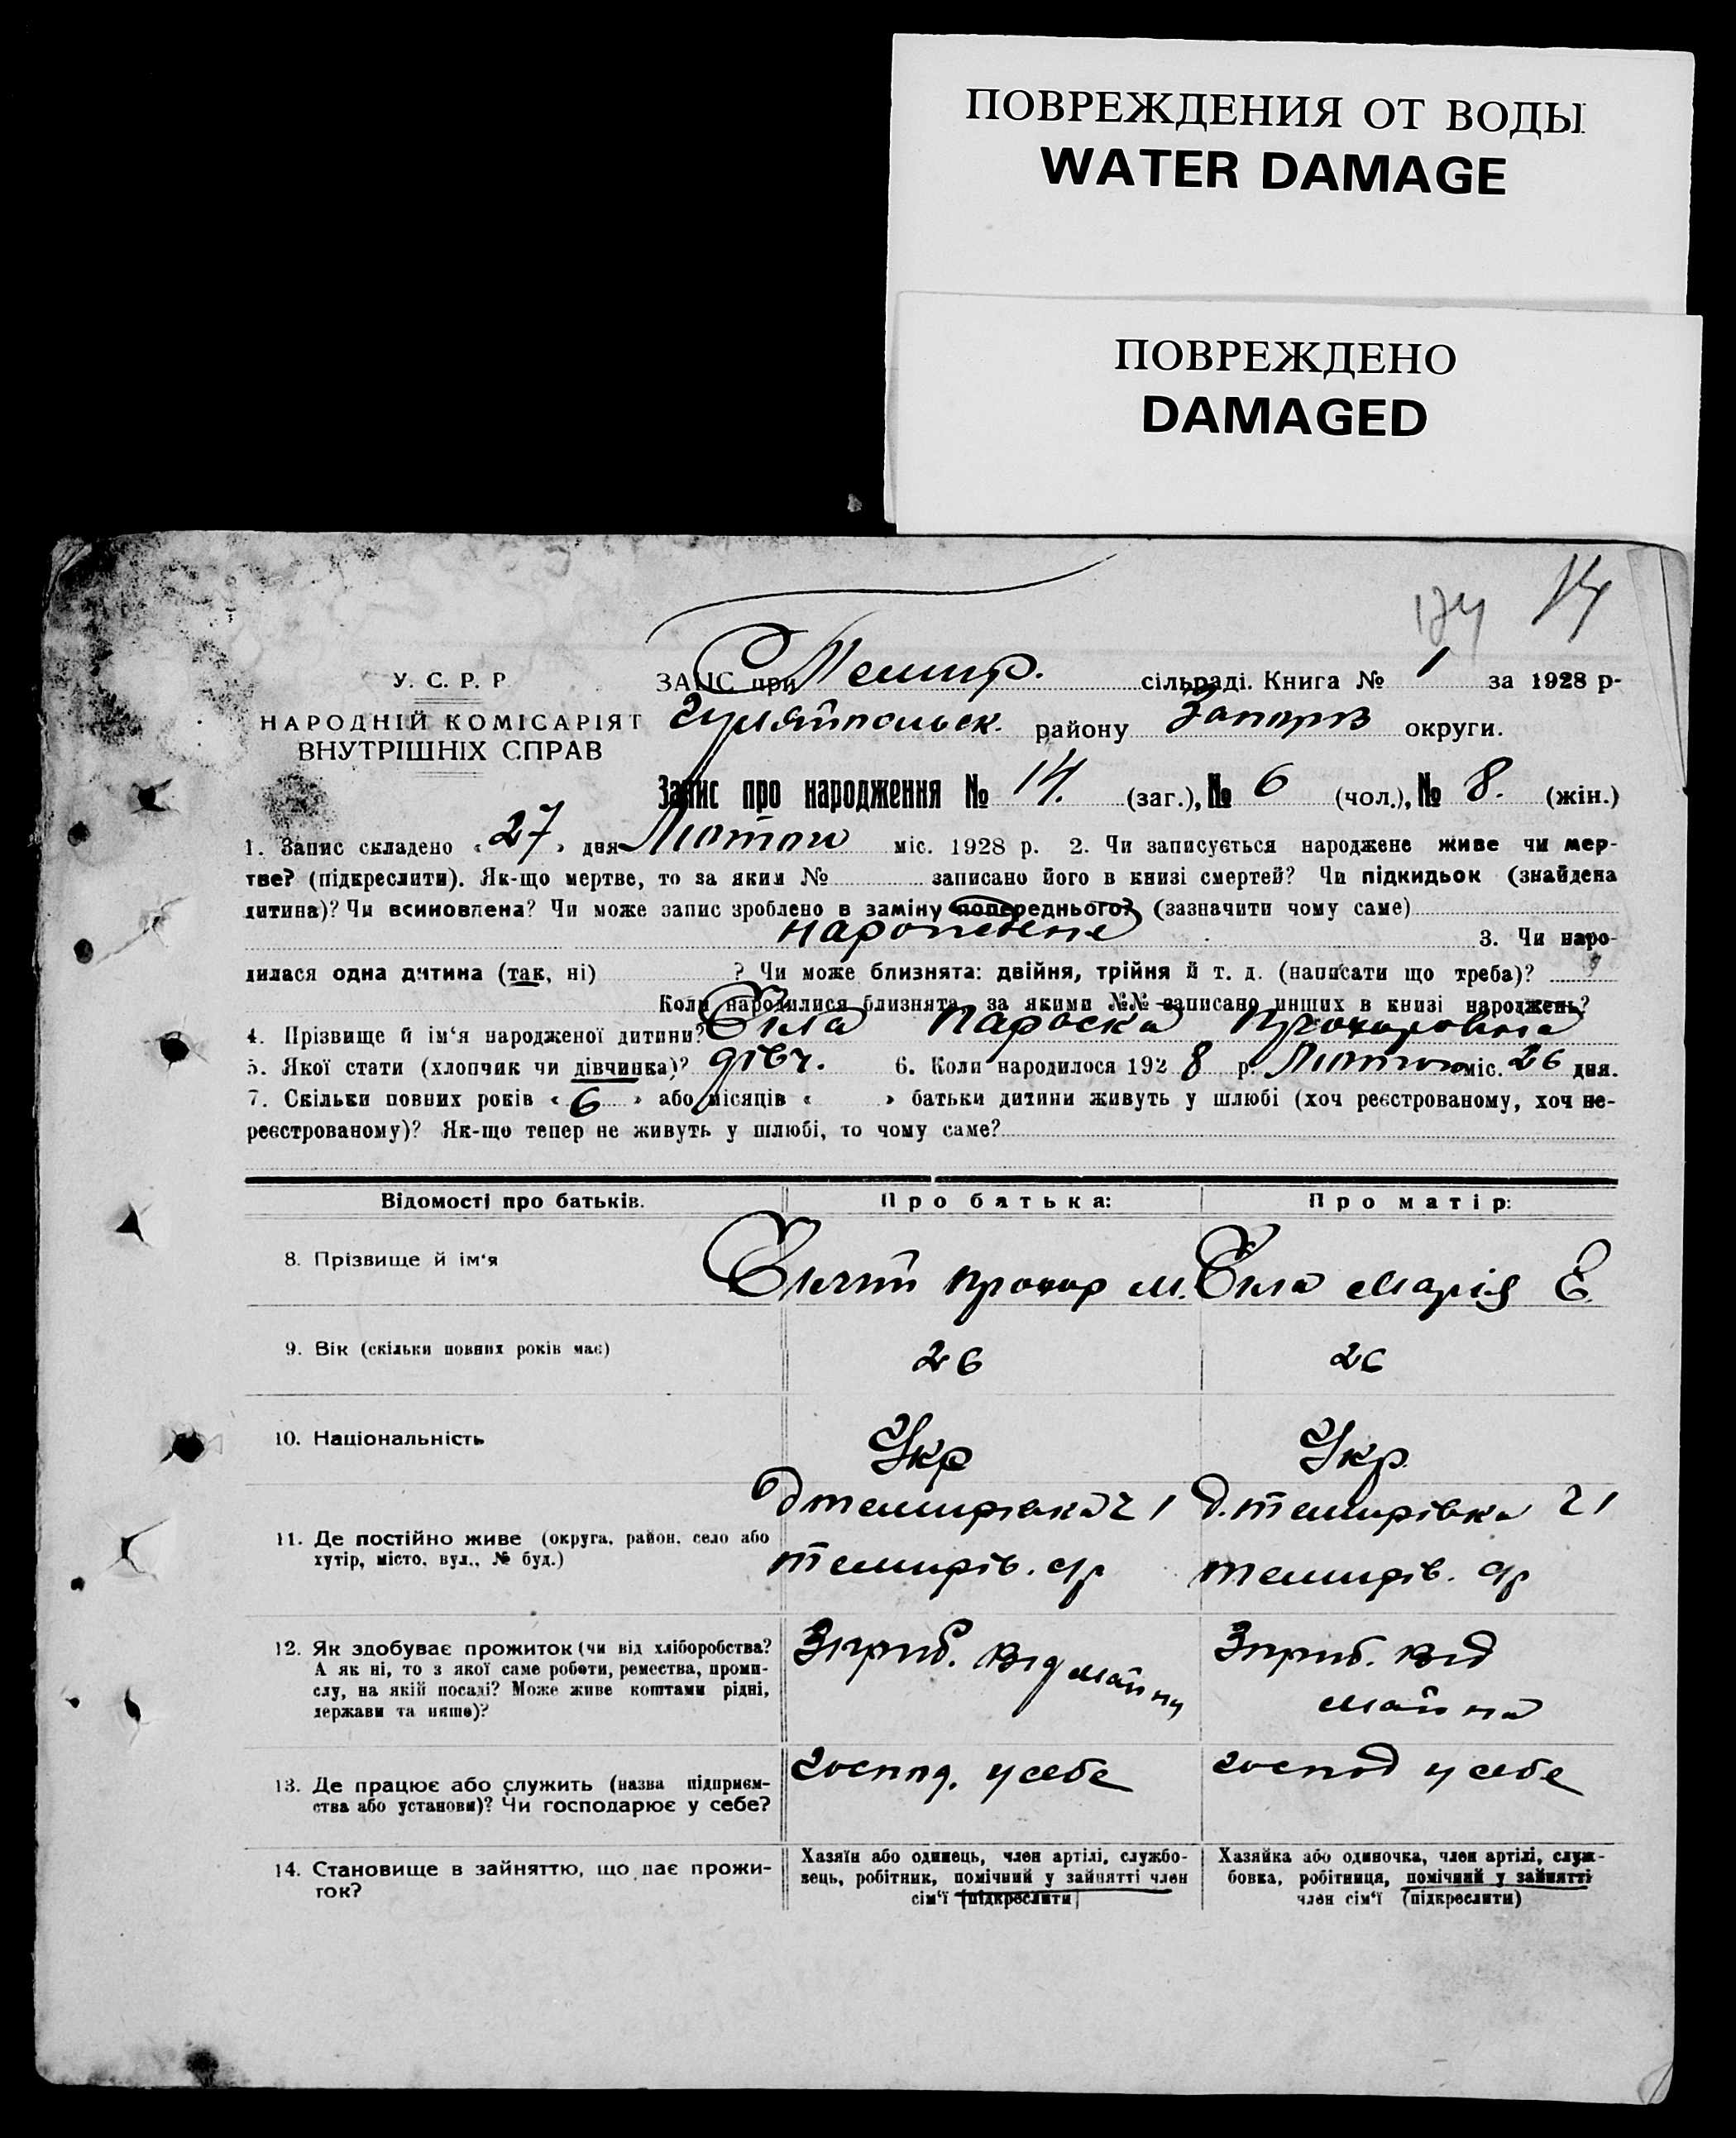 ПОВРЕЖДЕНИЯ ОТ ВОДЫ
WATER DAMAGE
ПОВРЕЖДЕНО
DAMAGED
14
У. С. Р. Р
НАРОДНІЙ КОМІСАРІЯТ
ВНУТРІШНІХ СПРАВ
ЗАГС при Темир. сільраді. Книга № 1 за 1928 р-
Гуляйпольск. району Запоріз округи.
Запис про народження № 14. (заг.), № 6 (чол.), № 8. (жін.)
1. Запис складено «27» дня Лютого міс. 1928 р. 2. Чи записується народжене живе чи мер-
тве? (підкреслити). Як-що мертве, то за яким № записано його в книзі смертей? Чи підкидьок (знайдена
дитина)? Чи всиновлена? Чи може запис зроблено в заміну попереднього? (зазначити чому саме)
народжене 3. Чи наро-
дилася одна дитина (так, ні) ? Чи може близнята: двійня, трійня й т. д. (написати що треба)?
Коли народилися близнята, за якими №№ записано инших в книзі народжень?
4. Прізвище й ім‘я народженої дитини? Біла Параска Прохоровна
5. Якої стати (хлопчик чи дівчинка)? дівч. 6. Коли народилося 1928 р. Лютого міс. 26 дня.
7. Скільки повних років «6» або місяців « » батьки дитини живуть у шлюбі (хоч реєстрованому, хоч не-
реєстрованому)? Як-що тепер не живуть у шлюбі, то чому саме?
Відомості про батьків. Про батька: Про матір:
8. Прізвище й ім‘я Прохор М. Біла Марія Е.
9. Вік (скільки повних років має) 26 26
10. Національність Укр Укр.
11. Де постійно живе (округа, район, село або
хутір, місто, вул., № буд.)
Темирів. с/р
д. Темирівка 21
Темирів. с/р
12. Як здобуває прожиток (чи від хліборобства?
А як ні, то з якої саме роботи, ремества, проми-
слу, на якій посаді? Може живе коштами рідні,
держави та инше)?
Зприб. від майна
Зприб. від
майна
13. Де працює або служить (назва підприєм-
ства або установи)? Чи господарює у себе?
господ. у себе
господ у себе
14. Становище в зайняттю, що дає прожи-
ток?
Хазяїн або одинець, член артілі, службо-
вець, робітник, помічний у зайнятті член
сім‘ї (підкреслити)
Хазяйка або одиночка, член артілі, служ-
бовка, робітниця, помічний у зайнятті
член сім‘ї (підкреслити)